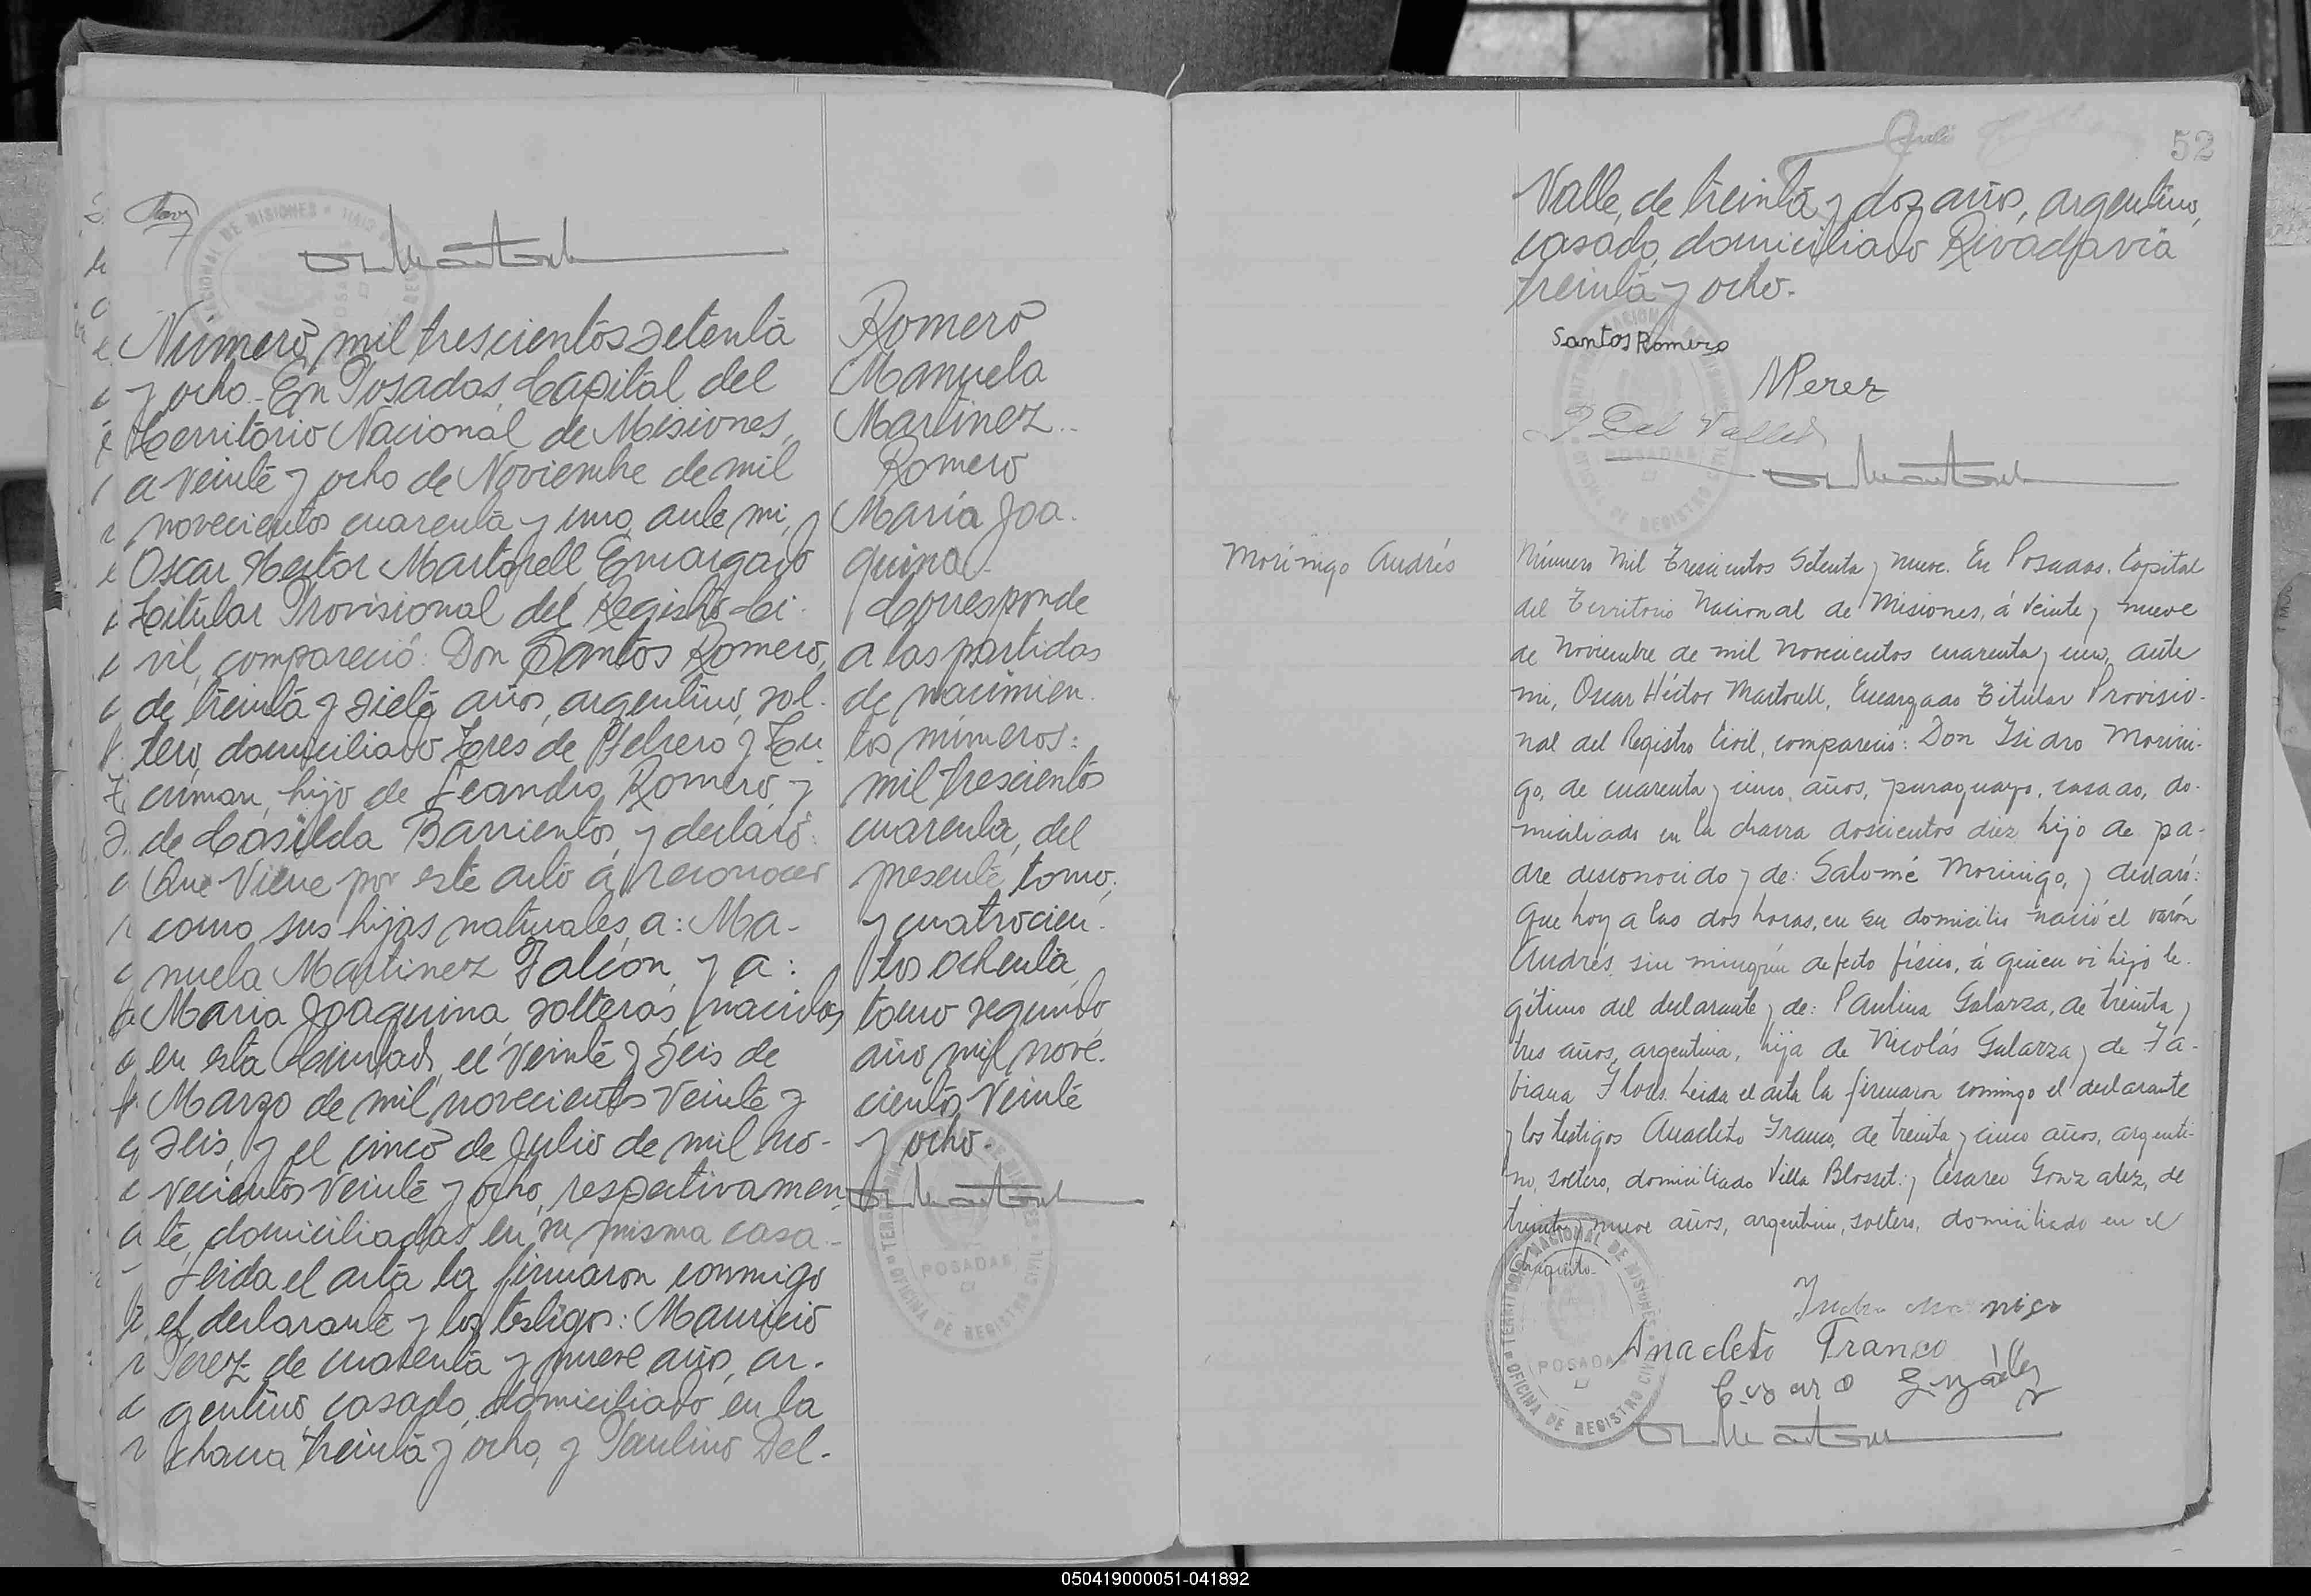 Número mil trescientos setenta
y ocho.- En Posadas, Capital del
Territorio Nacional de Misiones,
a veinte y ocho de Noviembre de mil
novecientos cuarenta y uno, ante mi,
Oscar Hector Martorell, Encargado
Titular Provisional del Registro Ci-
vil, compareció: Don Santos Romero,
de treinta y siete años, argentino, sol-
tero, domiciliado Tres de Febrero y Tu-
cuman, hijo de Leandro Romero, y
de Casilda Barrientos, y declaró:
Que viene por este acto á reconocer
como sus hijas naturales, a: Ma-
nuela Martinez Falcón, y a:
Maria Joaquina, solteras, nacidas
en esta Ciudad, el veinte y seis de
Marzo de mil novecientos veinte y
seis, y el cinco de Julio de mil no-
vecientos veinte y ocho, respectivamen-
te, domiciliadas en su misma casa.-
Leida el acta la firmaron conmigo
el declarante y los testigos: Mauricio
Perez, de cuarenta y nueve años, ar-
gentino, casado, domiciliado en la
chacra treinta y ocho, y Paulino Del-
Romero
Manuela
Martinez.-
Romero
María Joa-
quina.-
Corresponde
a las partidas
de nacimien-
tos números:
mil trescientos
cuarenta, del
presente tomo;
y cuatrocien-
tos ochenta,
tomo segundo,
año mil nove-
cientos veinte
y ocho.-
TERRITORIO NACIONAL DE MISIONES
POSADAS
OFICINA DE REGISTRO CIVIL
52
Valle, de treinta y dos años, argentino,
casado, domiciliado Rivadavia
treinta y ocho.-
Santos Romero
MPerez
P Del Valle
Morinigo Andrés
Número Mil Trescientos Setenta y nueve. En Posadas. Capital
del Territorio Nacional de Misiones, á Veinte y nueve
de Noviembre de mil novecientos cuarenta y uno, ante
mi, Oscar Héctor Martorell, Encargado Titular Provisio-
nal del Registro Civil, compareció: Don Isidro Morini-
go, de cuarenta y cinco años, paraguayo, casado, do-
miciliado en la chacra doscientos diez hijo de pa-
dre desconocido y de: Salomé Morinigo, y declaró:
Que hoy a las dos horas, en su domicilio nació el varón
Andrés, sin ningún defecto físico, á quien vi hijo le-
gítimo del declarante y de: Paulina Galarza, de treinta y
tres años, argentina, hija de Nicolás Galarza y de Fa-
biana Flores. Leida el acta la firmaron conmigo el declarante
y los testigos Anacleto Franco, de treinta y cinco años, argenti-
no, soltero, domiciliado Villa Blosset; y Cesareo Gonzalez, de
treinta y nueve años, argentino, soltero, domiciliado en el
Chaquito.-
Anacleto Franco
TERRITORIO NACIONAL DE MISIONES
POSADAS
OFICINA DE REGISTRO CIVIL
050419000051-041892